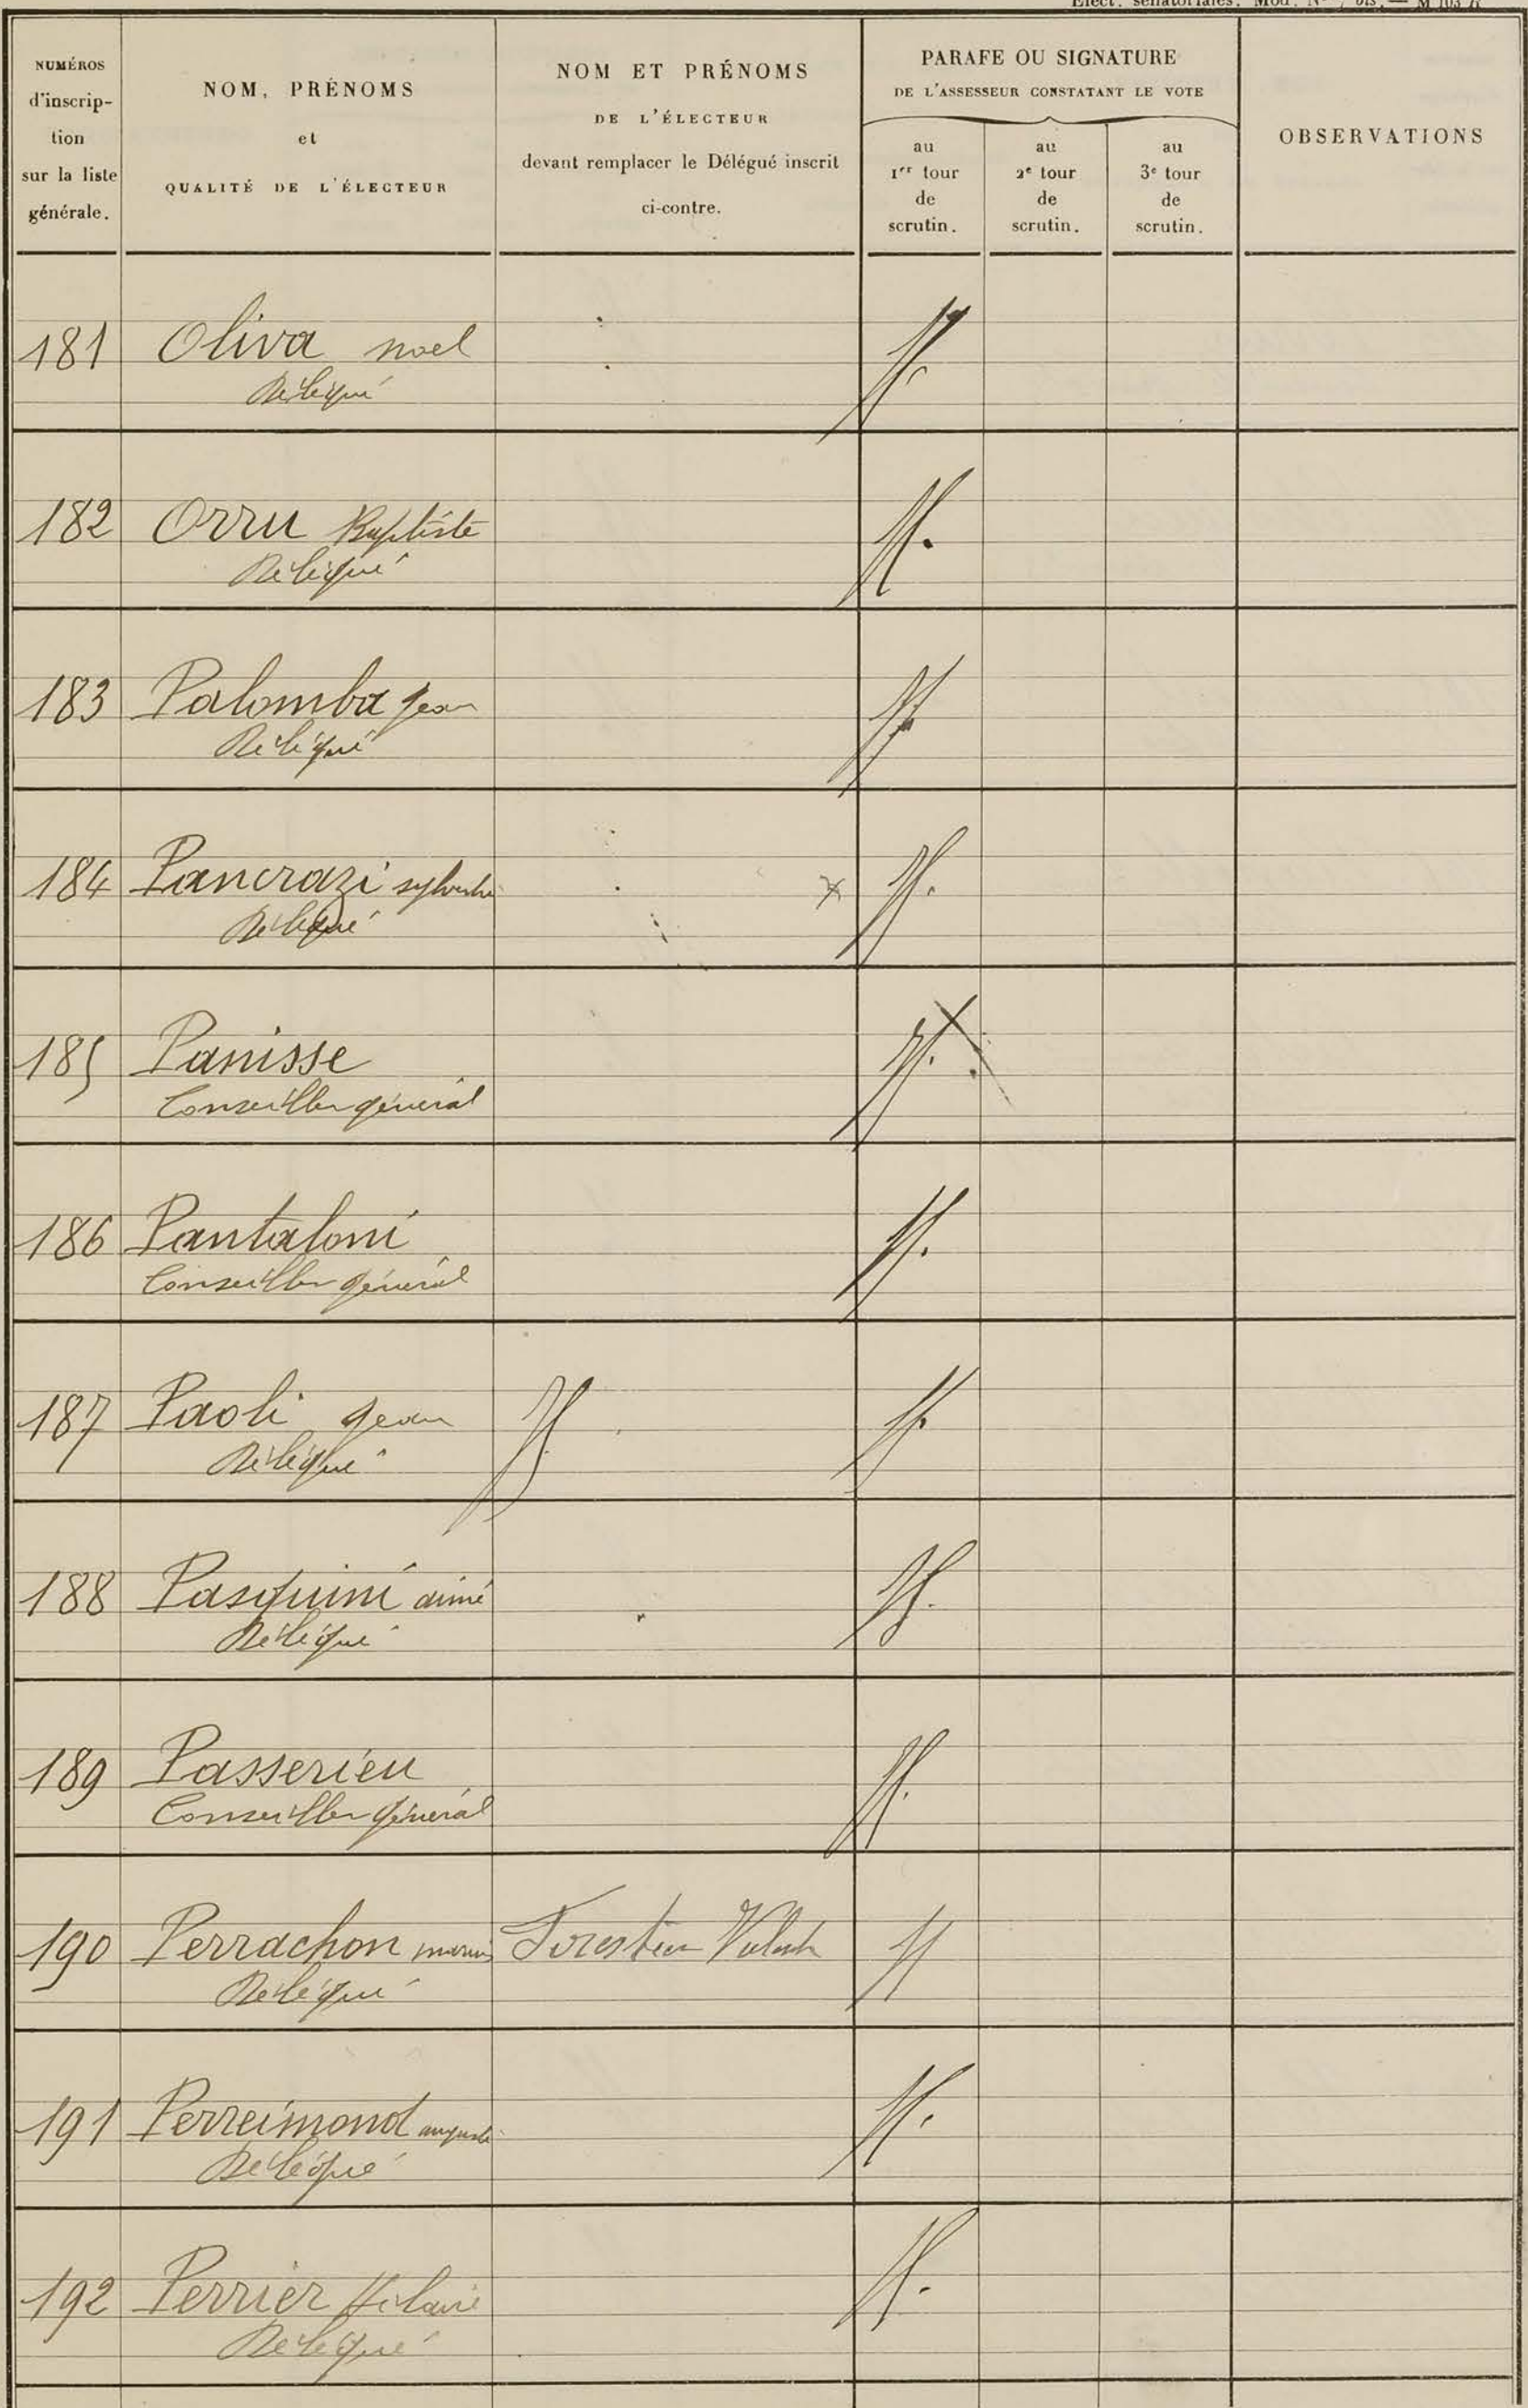 Elect. sénatoriales. Mod. N° 7 bis. — M 103 R
NUMÉROS
d'inscrip-
tion
sur la liste
générale.
NOM, PRÉNOMS
et
QUALITÉ DE L'ÉLECTEUR
NOM ET PRÉNOMS
DE L'ÉLECTEUR
devant remplacer le Délégué inscrit
ci-contre.
PARAFE OU SIGNATURE
DE L'ASSESSEUR CONSTATANT LE VOTE
au
1er tour
de
scrutin.
au
2e tour
de
scrutin.
au
3e tour
de
scrutin.
OBSERVATIONS
181 Oliva noel
Délégué
182 Orru Baptiste
Délégué
183 Palomba Jean
Délégué
184 Pancrazi sylvestre
Délégué
185 Panisse
Conseiller général
186 Pantaloni
Conseiller général
187 Paoli Jean
Délégué
188 Pasquini aimé
Délégué
189 Passerieu
Conseiller général
190 Perrachon marius Forestier
Délégué
191 Perreimond auguste
Délégué
192 Perrier Hilaire
Délégué